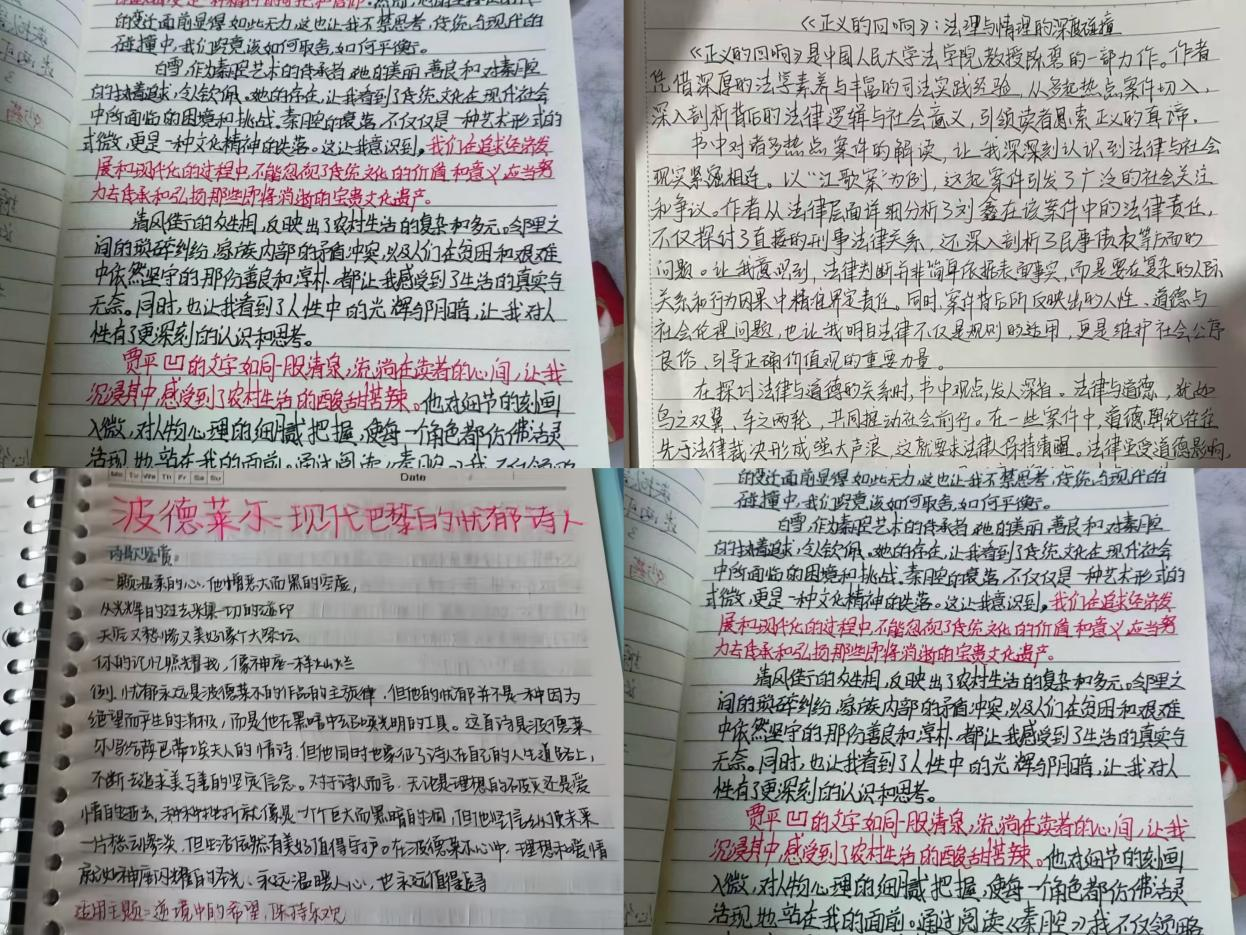 的变迁面前显得如此无力,这也让我不禁思考,传统与现代的
碰撞中,我们究竟该如何取舍,如何平衡。
白雪,作为秦腔艺术的传承者,她的美丽、善良和对秦腔
的执着追求,令人钦佩。她的存在,让我看到了传统文化在现代社会
中所面临的困境和挑战。秦腔的衰落,不仅仅是一种艺术形式的
式微,更是一种文化精神的失落。这让我意识到,我们在追求经济发
展和现代化的过程中,不能忽视了传统文化的价值和意义,应当努
力去传承和弘扬那些即将消逝的宝贵文化遗产。
清风街的众生相,反映出了农村生活的复杂和多元。邻里之
间的琐碎纠纷,家族内部的矛盾冲突,以及人们在贫困和艰难
中依然坚守的那份善良和淳朴,都让我感受到了生活的真实与
无奈。同时,也让我看到了人性中的光辉与阴暗,让我对人
性有了更深刻的认识和思考。
贾平凹的文字如同一股清泉,流淌在读者的心间,让我
沉浸其中,感受到了农村生活的酸甜苦辣。他对细节的刻画
入微,对人物心理的细腻把握,使每一个角色都仿佛活灵
活现地站在我的面前。通过阅读《秦腔》,我不仅领略
《正义的回响》:法理与情理的深度碰撞
《正义的回响》是中国人民大学法学院教授陈碧的一部力作。作者
凭借深厚的法学素养与丰富的司法实践经验,从多起热点案件切入,
深入剖析背后的法律逻辑与社会意义,引领读者思索正义的真谛。
书中对诸多热点案件的解读,让我深深刻认识到法律与社会
现实紧密相连。以“江歌案”为例,这起案件引发了广泛的社会关注
和争议。作者从法律层面详细分析了刘鑫在该案件中的法律责任,
不仅探讨了直接的刑事法律关系,还深入剖析了民事侵权等方面的
问题。让我意识到,法律判断并非简单依据表面事实,而是要在复杂的人际
关系和行为因果中精准界定责任。同时,案件背后所反映出的人性、道德与
社会伦理问题,也让我明白法律不仅是规则的适用,更是维护社会公序
良俗、引导正确价值观的重要力量。
在探讨法律与道德的关系时,书中观点发人深省。法律与道德,犹如
鸟之双翼、车之两轮,共同推动社会前行。在一些案件中,道德舆论往往
先于法律裁决形成强大声浪,这就要求法律保持清醒。法律虽受道德影响,
Mo Tu We Th Fr Sa Su
Date
波德莱尔-现代巴黎的忧郁诗人
诗歌鉴赏:
一颗温柔的心,他憎恶大而黑的空虚,
从光辉的过去采集一切的遗印
天空又愁惨又美好像个大祭坛
你的记忆照耀我,像神座一样灿烂
例:忧郁永远是波德莱尔的作品的主旋律,但他的忧郁并不是一种因为
绝望而产生的消极,而是他在黑暗中寻求光明的工具。这首诗是波德莱
尔写给萨巴蒂埃夫人的情诗,但他同时也象征了诗人在自己的人生道路上,
不断去追求美与善的坚定信念。对于诗人而言,无论是理想的不被
情的逝去,种种挫折就像是一个巨大而黑暗的洞,但他坚信纵使未来
一片愁云惨淡,但生活依然有美好值得守护。在波德莱尔心中,理想和爱情
就如神座闪耀的希光,永远温暖人心,也永远值得追寻
适用主题:逆境中的希望,保持乐观
的变迁面前显得如此无力,这也让我不禁思考,传统与现代的
碰撞中,我们究竟该如何取舍,如何平衡。
白雪,作为秦腔艺术的传承者,她的美丽、善良和对秦腔
的执着追求,令人钦佩。她的存在,让我看到了传统文化在现代社会
中所面临的困境和挑战。秦腔的衰落,不仅仅是一种艺术形式的
式微,更是一种文化精神的失落。这让我意识到,我们在追求经济发
展和现代化的过程中,不能忽视了传统文化的价值和意义,应当努
力去传承和弘扬那些即将消逝的宝贵文化遗产。
清风街的众生相,反映出了农村生活的复杂和多元。邻里之
间的琐碎纠纷,家族内部的矛盾冲突,以及人们在贫困和艰难
中依然坚守的那份善良和淳朴,都让我感受到了生活的真实与
无奈。同时,也让我看到了人性中的光辉与阴暗,让我对人
性有了更深刻的认识和思考。
贾平凹的文字如同一股清泉,流淌在读者的心间,让我
沉浸其中,感受到了农村生活的酸甜苦辣。他对细节的刻画
入微,对人物心理的细腻把握,使每一个角色都仿佛活灵
活现地站在我的面前。通过阅读《秦腔》,我不仅领略